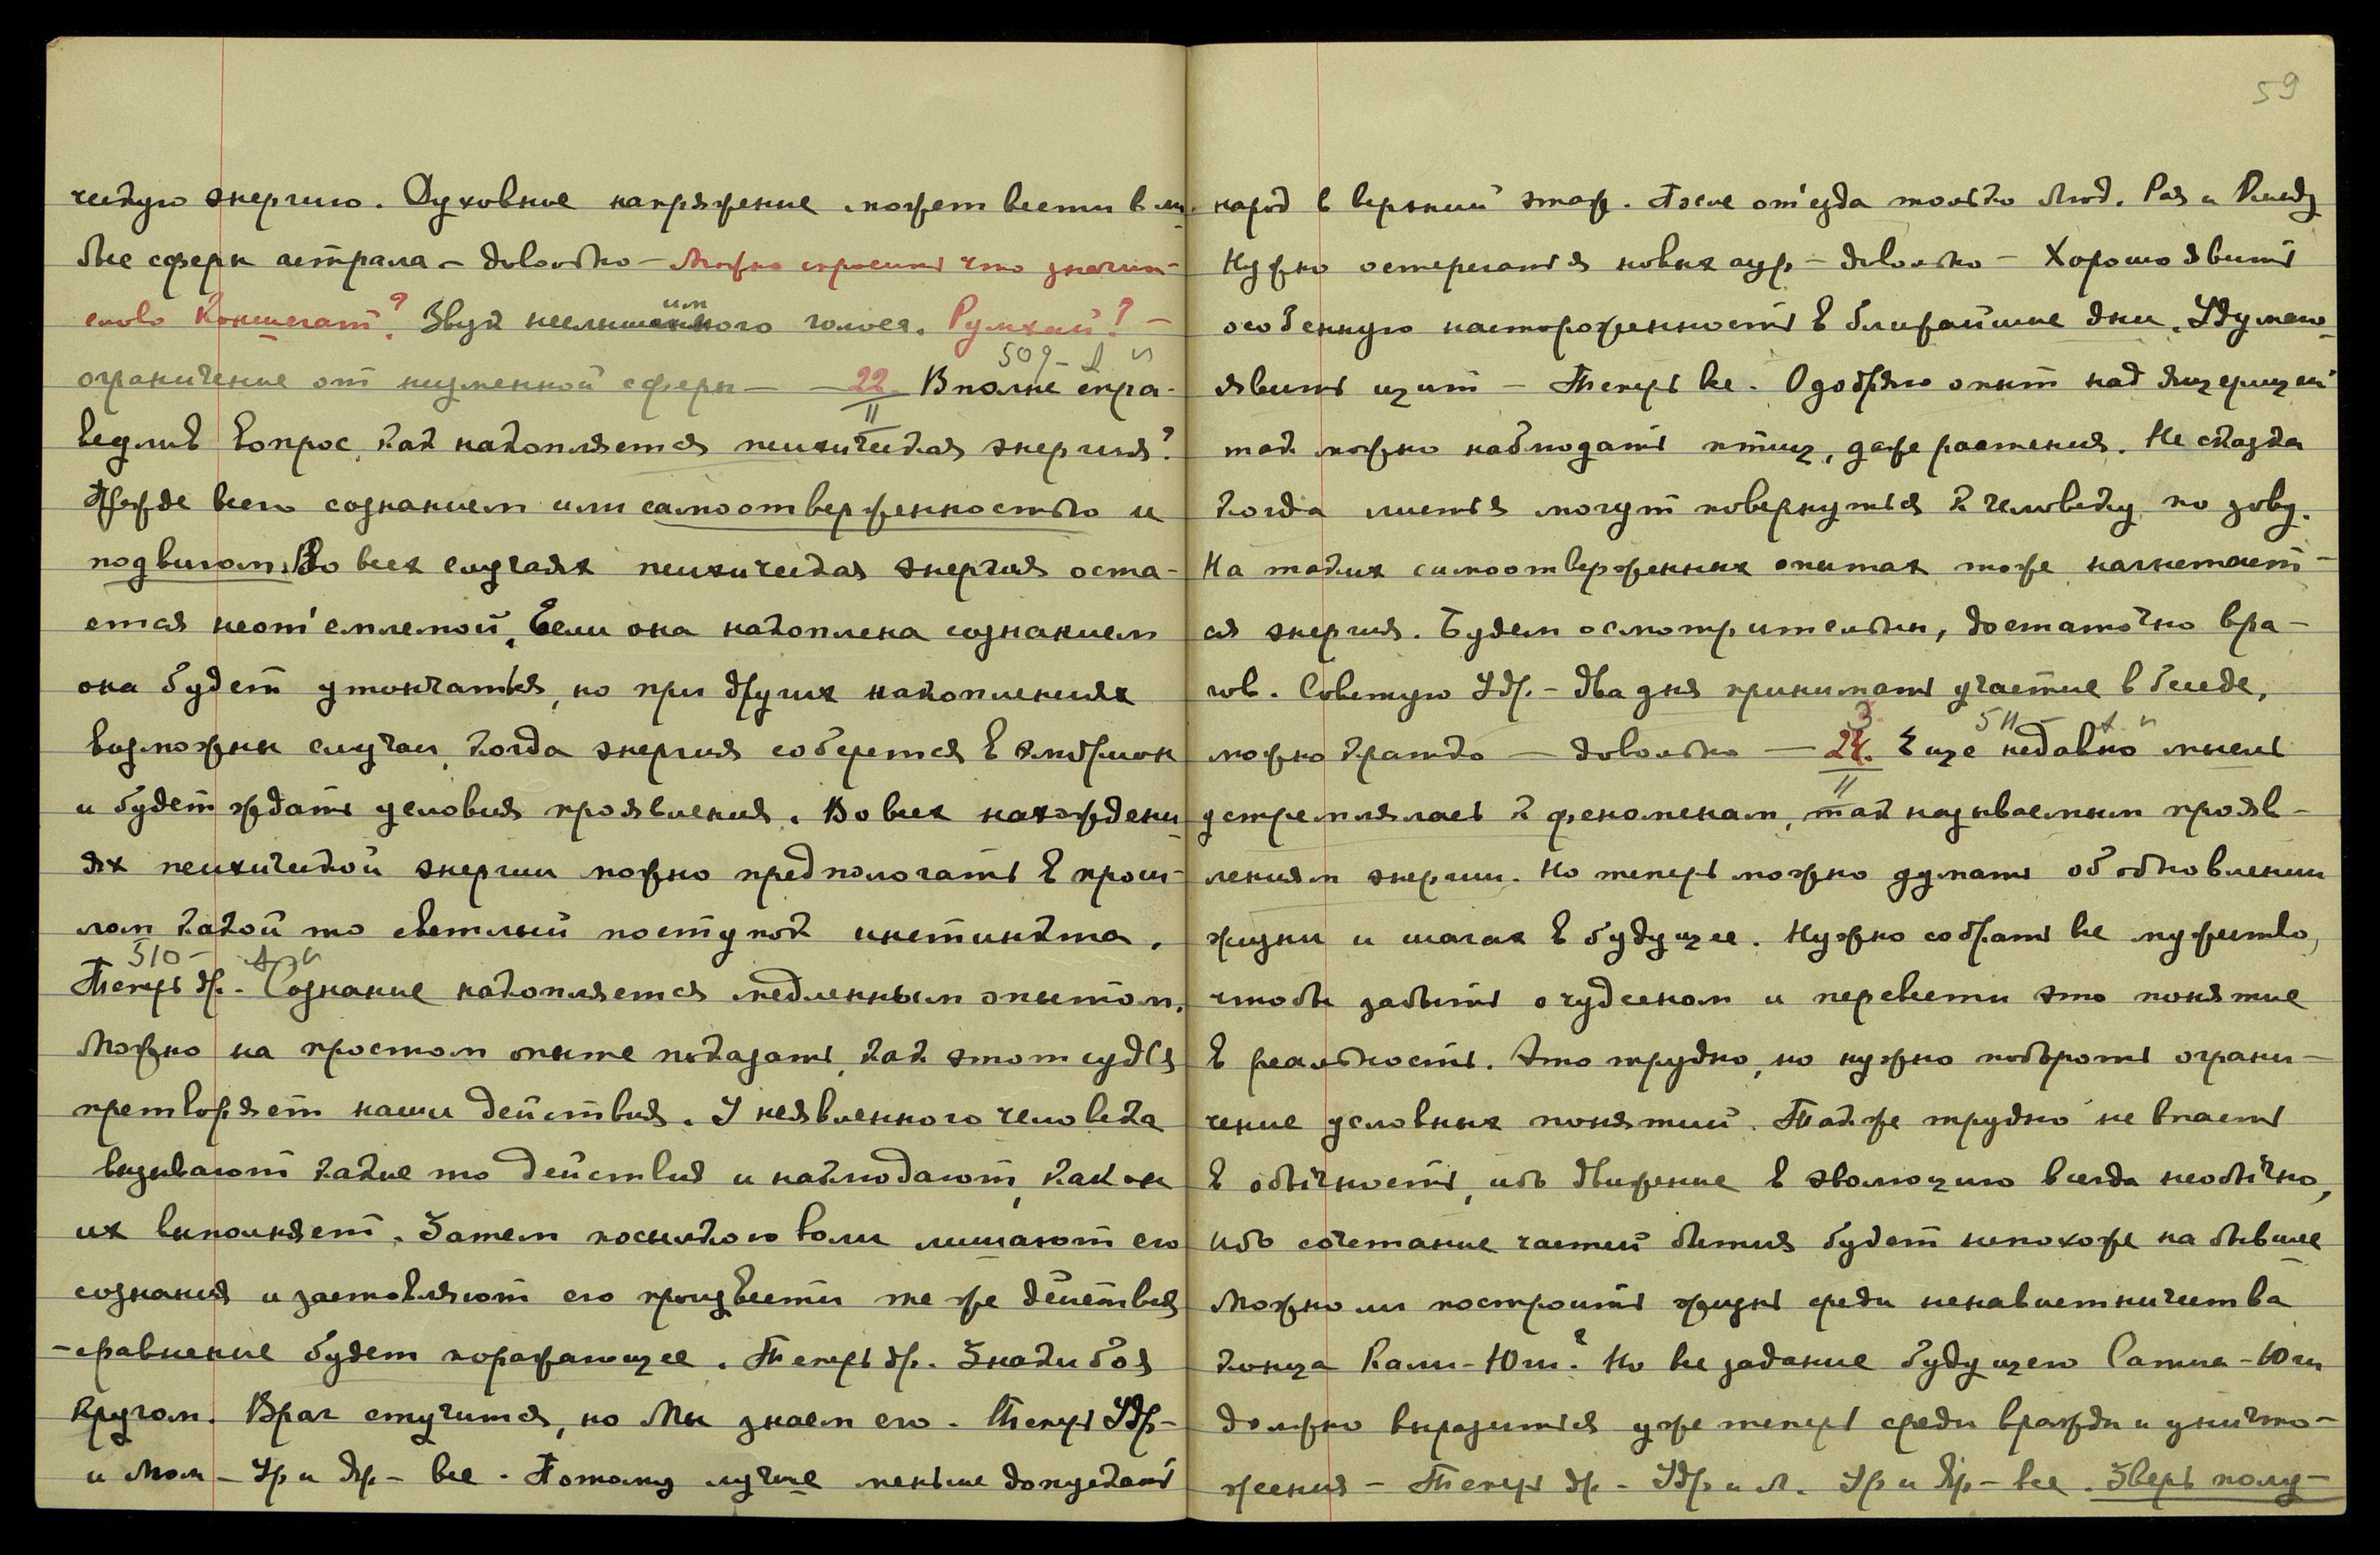 ческую энергию. Духовное напряжение может вести в ми-
бые сферы астрала – довольно – Можно спросить что значит
слово Коншегат? Звук неслышимого голоса. Румхай? –
509 – А й
ограничение от низменной сферы – – 22. Вполне спра-
II
ведлив вопрос, как накопляется психическая энергия?
Прежде всего сознанием или самоотверженностью и
подвигом. Во всех случаях психическая энергия оста-
ется неот'емлемой. Если она накоплена сознанием
она будет утончаться, но при других накоплениях
возможны случаи, когда энергия соберется в эмбрион
и будет ждать условия проявления. Во всех нахождени-
ях психической энергии можно предполагать в прош-
лом какой то светлый поступок инстинкта.
510 – А й
Теперь др. Сознание накопляется медленным опытом.
Можно на простом опыте показать, как этот судья
претворяет наши действия. У неявленного человека
вызывают какие то действия и наблюдают, как он
их выполняет. Затем посылкою воли лишают его
сознания и заставляют его произвести те же действия
– сравнение будет поражающее. Теперь др. Знаки боя
кругом. Враг стучится, но Мы знаем его. Теперь Удр –
и Мол – Ур и Яр – все. Потому лучше меньше допускать
59
народ в верхний этаж. После от'езда только Люд. Рая и
Нужно остерегаться новых аур – довольно – Хорошо явить
особенную настороженность в ближайшие дни. Удумаю
явить щит – Теперь все. Одобряю опыт над ящерицей
так можно наблюдать птиц, даже растения. Не сказка
когда листья могут повернуться к человеку по зову.
На таких самоотверженных опытах тоже нагнетает-
ся энергия. Будем осмотрительны, достаточно вра-
гов. Советую Удр. – два дня принимать участие в беседе,
511 – А й
можно кратко – довольно – 23. Еще недавно мысль
II
устремлялась к феноменам, так называемым прояв-
лениям энергии. Но теперь можно думать об обновлении
жизни и шагах в будущее. Нужно собрать все мужество,
чтобы забыть о чудесном и перевести это понятие
в реальность. Это трудно, но нужно побороть ограни-
чение условных понятий. Также трудно не впасть
в обычность, ибо движение в эволюцию всегда необычно,
ибо сочетание частей бытия будет непохоже на бывшее
Можно ли построить жизнь среди ненавистничества
конца Кали-Юги? Но все задание будущего Сатиа-Юги
должно выразиться уже теперь среди вражды и уничто-
жения – Теперь др. – Удр и Л. Ур и Яр – все. Зверь полу-